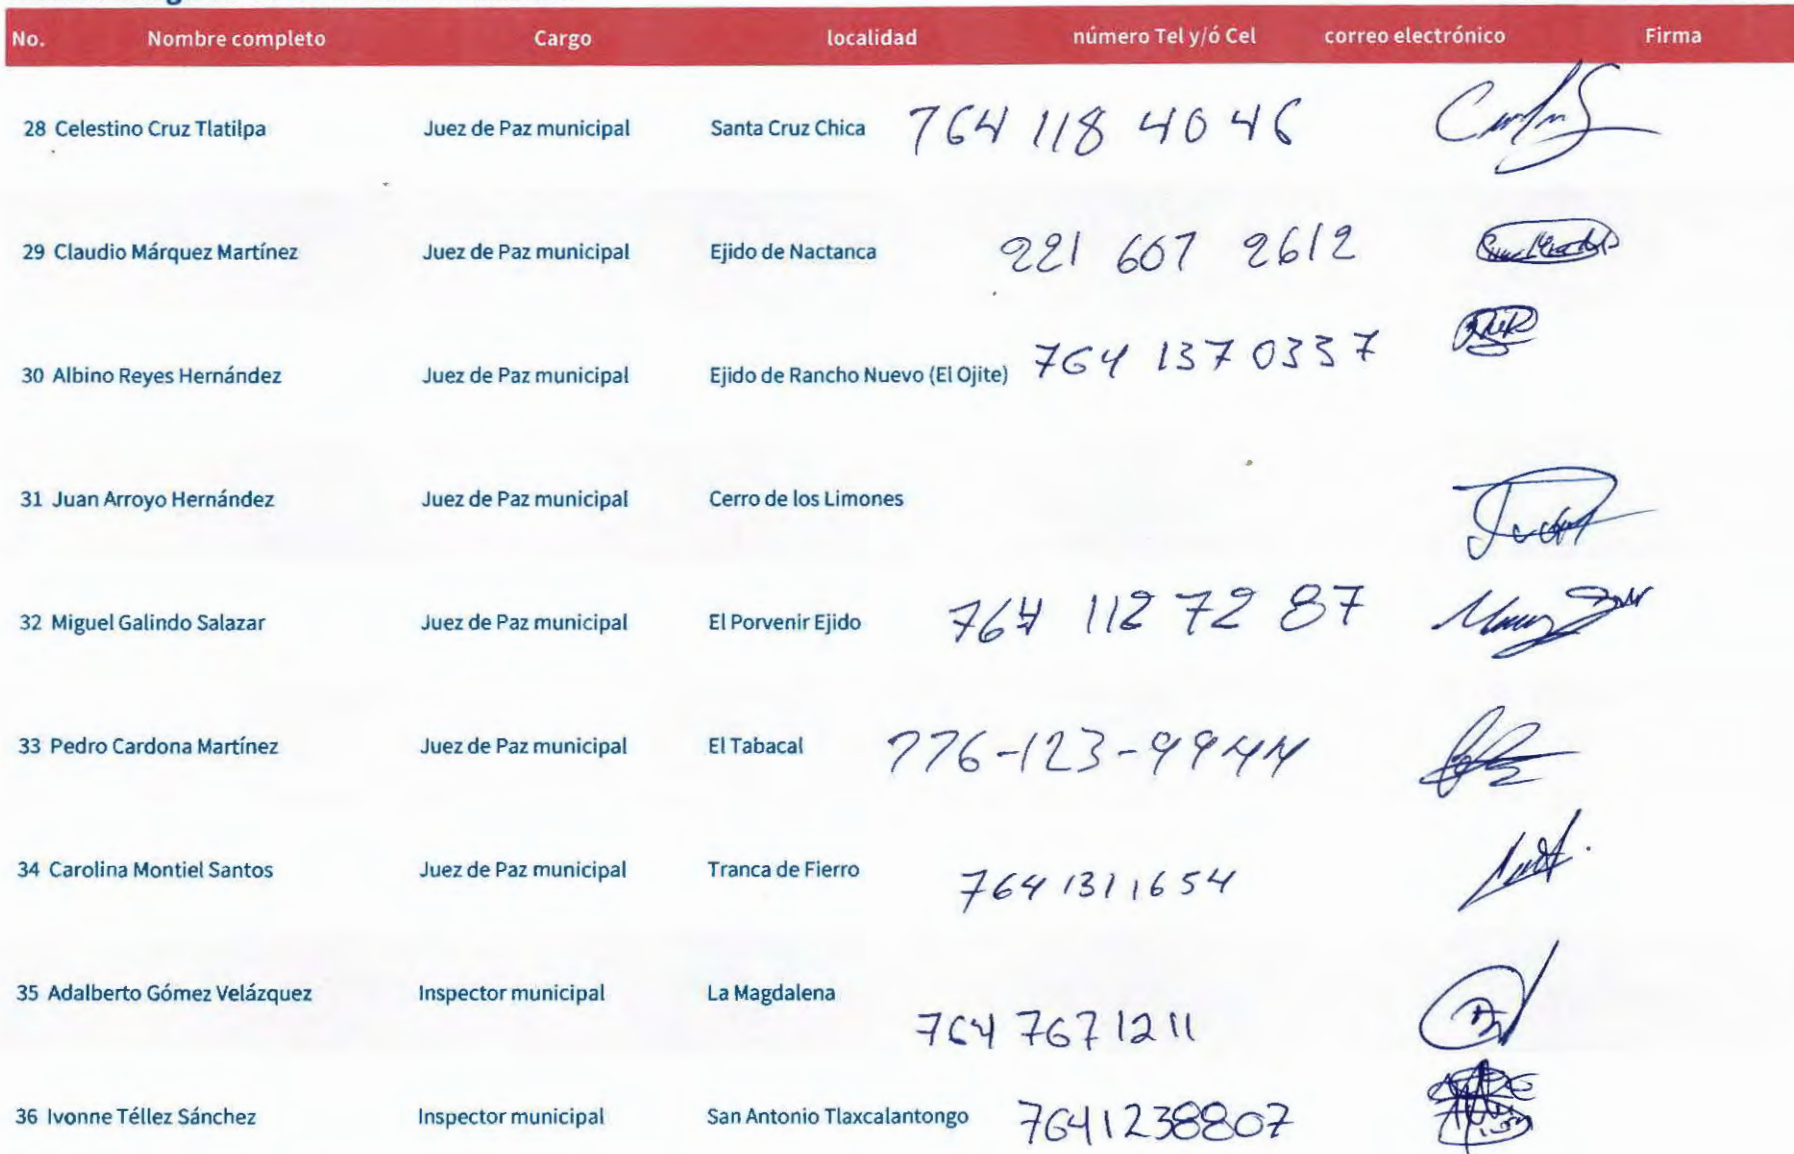 No. Nombre completo Cargo localidad número Tel y/ó Cel correo electrónico Firma
28 Celestino Cruz Tlatilpa Juez de Paz municipal Santa Cruz Chica 764 118 40 46
29 Claudio Márquez Martínez Juez de Paz municipal Ejido de Nactanca 221 607 2612
30 Albino Reyes Hernández Juez de Paz municipal Ejido de Rancho Nuevo (El Ojite) 764 137 0337
31 Juan Arroyo Hernández Juez de Paz municipal Cerro de los Limones
32 Miguel Galindo Salazar Juez de Paz municipal El Porvenir Ejido 764 112 72 87
33 Pedro Cardona Martínez Juez de Paz municipal El Tabacal 776-123-9944
34 Carolina Montiel Santos Juez de Paz municipal Tranca de Fierro 764 1311654
35 Adalberto Gómez Velázquez Inspector municipal La Magdalena 764 7671211
36 Ivonne Téllez Sánchez Inspector municipal San Antonio Tlaxcalantongo 7641238807